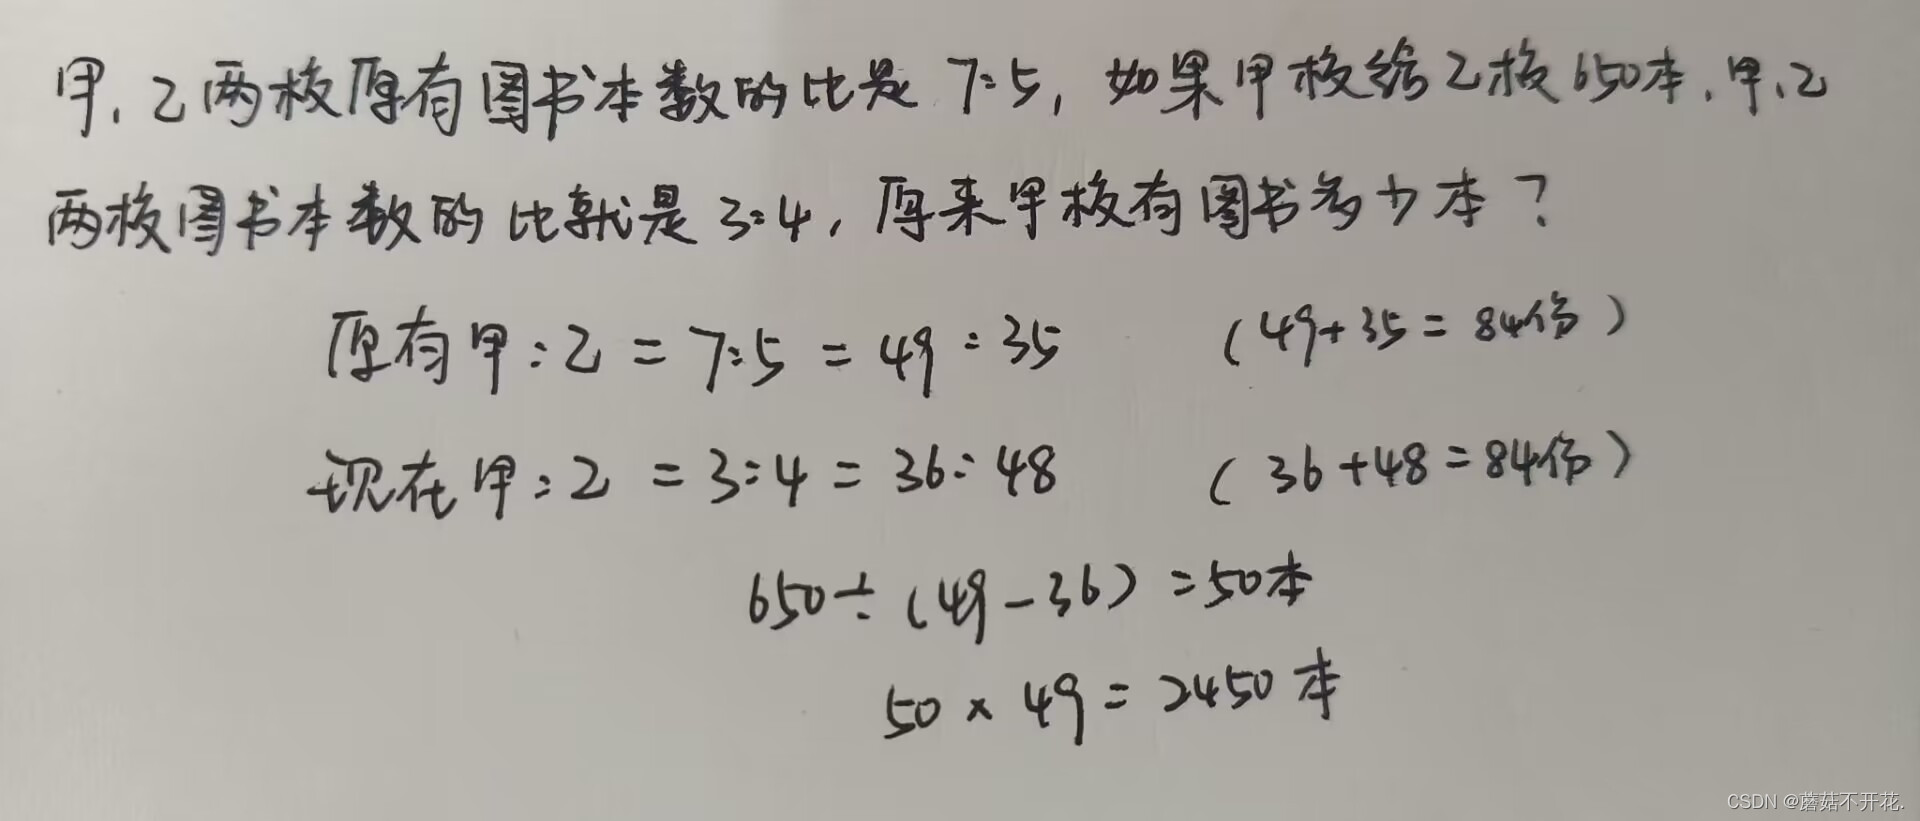 甲、乙两校原有图书本数的比是7:5,如果甲校给乙校650本,甲、乙
两校图书本数的比就是3:4,原来甲校有图书多少本?
原有甲:乙=7:5=49:35 (49+35=84份)
现在甲:乙=3:4=36:48 (36+48=84份)
650÷(49-36)=50本
50×49=2450本
CSDN @蘑菇不开花.